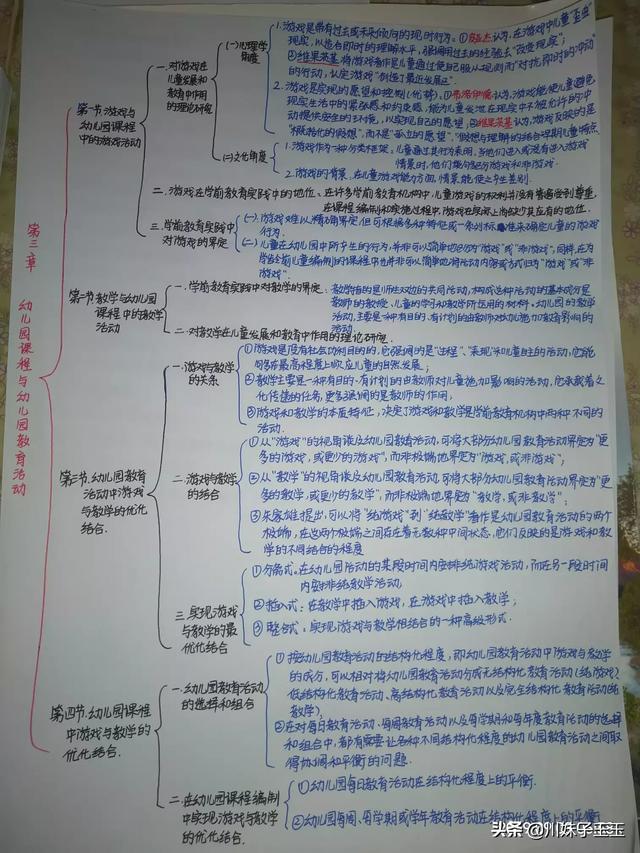 第三章 幼儿园课程与幼儿园教育活动
第一节.游戏与幼儿园课程中的游戏活动
一.对游戏在儿童发展和教育中作用的理论研究
(一)心理学角度
1.游戏是带有过去或未来倾向的现时行为。①皮亚杰认为,在游戏中儿童"歪曲"
现实,以适合即时的理解水平,强调用过去的经验去"改变现实";
②维果茨基将游戏看作是儿童通过使自己服从规则而"对抗即时的冲动"
的行动,认定游戏"创造了最近发展区"。
2.游戏是实现的愿望和控制(优势)。①弗洛伊德认为,游戏能使儿童避免
现实生活中的紧张感和约束感,能为儿童发泄在现实中不被允许的冲
动提供安全的环境,以实现自己的愿望。②维果茨基认为,游戏反映的是
"概括化的假想",而不是"孤立的愿望"。
(二)文化角度
1.游戏作为一种分类框架,儿童通过其行为表明,当他们进入或没有进入游戏
情景时,他们能勾起分游戏和非游戏.
2.游戏的背景,在儿童游戏能力方面,情景能使之产生差别.
二.游戏在学前教育实践中的地位、在许多学前教育机构中,儿童游戏的权利并没有普遍受到尊重,
在课程编制和实施过程中,游戏在原则上尚缺少其应有的地位.
三.学前教育实践中对游戏的界定
(一).游戏难以精确界定但可根据多种特征或一系列标准来确定儿童的游戏
行为.
(二).儿童在幼儿园中所产生的行为,并非可以简单地归为"游戏"或"非游戏",同样,在为
学龄前儿童编制的课程中也并非可以简单地将活动内容或方式归为"游戏"或"非
游戏".
第一节.教学与幼儿园课程中的教学活动
一.学前教育实践中对教学的界定:教学指的是师生双边的共同活动,构成这种活动的基本成分是
教师的教授、儿童的学习和教学所运用的材料。幼儿园的教学
活动,主要是一种有目的、有计划的由教师对幼儿施加教育影响的
活动.
二.对教学在儿童发展和教育中作用的理论研究.
第三节.幼儿园教育活动中游戏与教学的优化结合.
一.游戏与教学的关系
①游戏是没有社会功利目的的,它强调的是"过程"、"表现"和儿童自主的活动,它能
够在最高程度上顺应儿童的自然发展;
②教学主要是一种有目的、有计划的由教师对儿童施加影响的活动,它承载着文
化传递的任务,更多强调的是教师的作用;
③游戏和教学的本质特征,决定了游戏和教学是学前教育机构中两种不同的
活动.
二.游戏与教学的结合
①从"游戏"的视角谈及幼儿园教育活动,可将大部分幼儿园教育活动界定为"更
多的游戏,或更少的游戏",而非极端地界定为"游戏,或非游戏";
②从"教学"的视角谈及幼儿园教育活动,可将大部分幼儿园教育活动界定为"更
多的教学,或更少的教学",而非极端地界定为"教学,或非教学";
③朱家雄提出,可以将"纯游戏"到"纯教学"看作是幼儿园教育活动的两个
极端,在这两个极端之间存在着无数种中间状态,他们反映的是游戏和教
学的不同结合的程度
三.实现游戏与教学的最优化结合
①分离式.在幼儿园活动的某段时间内安排纯游戏活动,而在另一段时间
内安排纯教学活动,
②插入式:在教学中插入游戏,在游戏中插入教学;
③整合式:实现游戏与教学相结合的一种高级形式.
第四节.幼儿园课程中游戏与教学的优化结合.
一.幼儿园教育活动的选择和组合
①按幼儿园教育活动的结构化程度,即幼儿园教育活动中游戏与教学
的成分,可以相对将幼儿园教育活动分成无结构化教育活动(纯游戏)
低结构化教育活动、高结构化教育活动以及完全结构化教育活动(纯
教学)
②在对每日教育活动、每周教育活动以及每学期和每年度教育活动的选择
和组合中,都有需要让各种不同结构化程度的幼儿园教育活动之间取
得协调和平衡的问题.
二.在幼儿园课程编制中实现游戏与教学的优化结合.
①幼儿园每日教育活动在结构化程度上的平衡.
②幼儿园每周、每学期或学年教育活动在结构化程度上的平衡
头条@川妹子玉玉